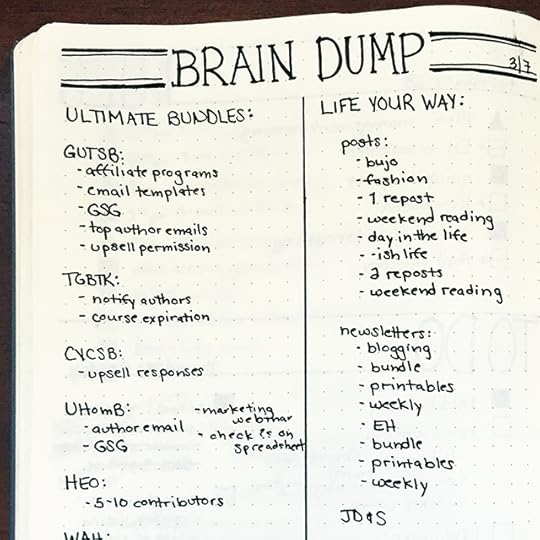 BRAIN DUMP
3/7
ULTIMATE BUNDLES:
GUTSB:
- affiliate programs
- email templates
- GSG
- top author emails
- upsell permission
TGBTK:
- notify authors
- course expiration
CYCSB:
- upsell responses
UHomB:
- author email
- GSG
- marketing
webinar
- check ?s on
spreadsheet
HEO:
- 5-10 contributors
WAH:
LIFE YOUR WAY:
posts:
- bujo
- fashion
- 1 repost
- weekend reading
- day in the life
- -ish life
- 2 reposts
- weekend reading
newsletters:
- blogging
- bundle
- printables
- weekly
- EH
- bundle
- printables
- weekly
JD&S